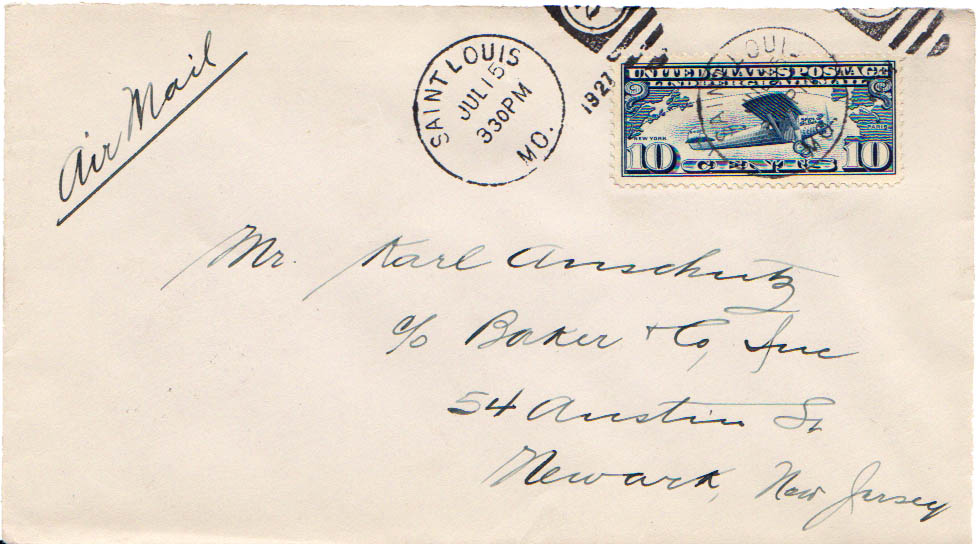 Air Mail
SAINT LOUIS
JUL 15
330 PM
MO.
1927
UNITED STATES POSTAGE
LINDBERGH AIR MAIL
NEW YORK
PARIS
10 CENTS 10
Mr. Karl Anschutz
c/o Baker + Co, Inc
54 Austin St
Newark, New Jersey